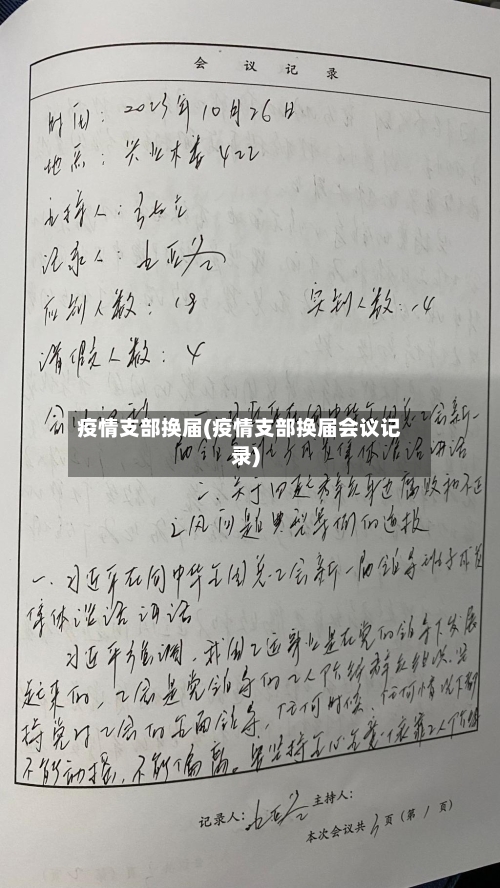 会 议 记 录
时间：2023年10月26日
地点：兴业木楼422
主持人：
记录人：
应到人数：18 实到人数：14
请假人数：4
疫情支部换届(疫情支部换届会议记
录)
二、关于四起群众身边腐败和不正
之风问题典型案例的通报
一、习近平在同中华全国总工会新一届领导班子成员
集体谈话讲话
习近平强调，我国工运事业是在党的领导下发展
起来的，工会是党领导的工人阶级群众组织，坚
持党对工会的全面领导，任何时候、任何情况下都
不能动摇、不能偏离。要坚持全心全意依靠工人
记录人： 主持人：
本次会议共3页（第1页）